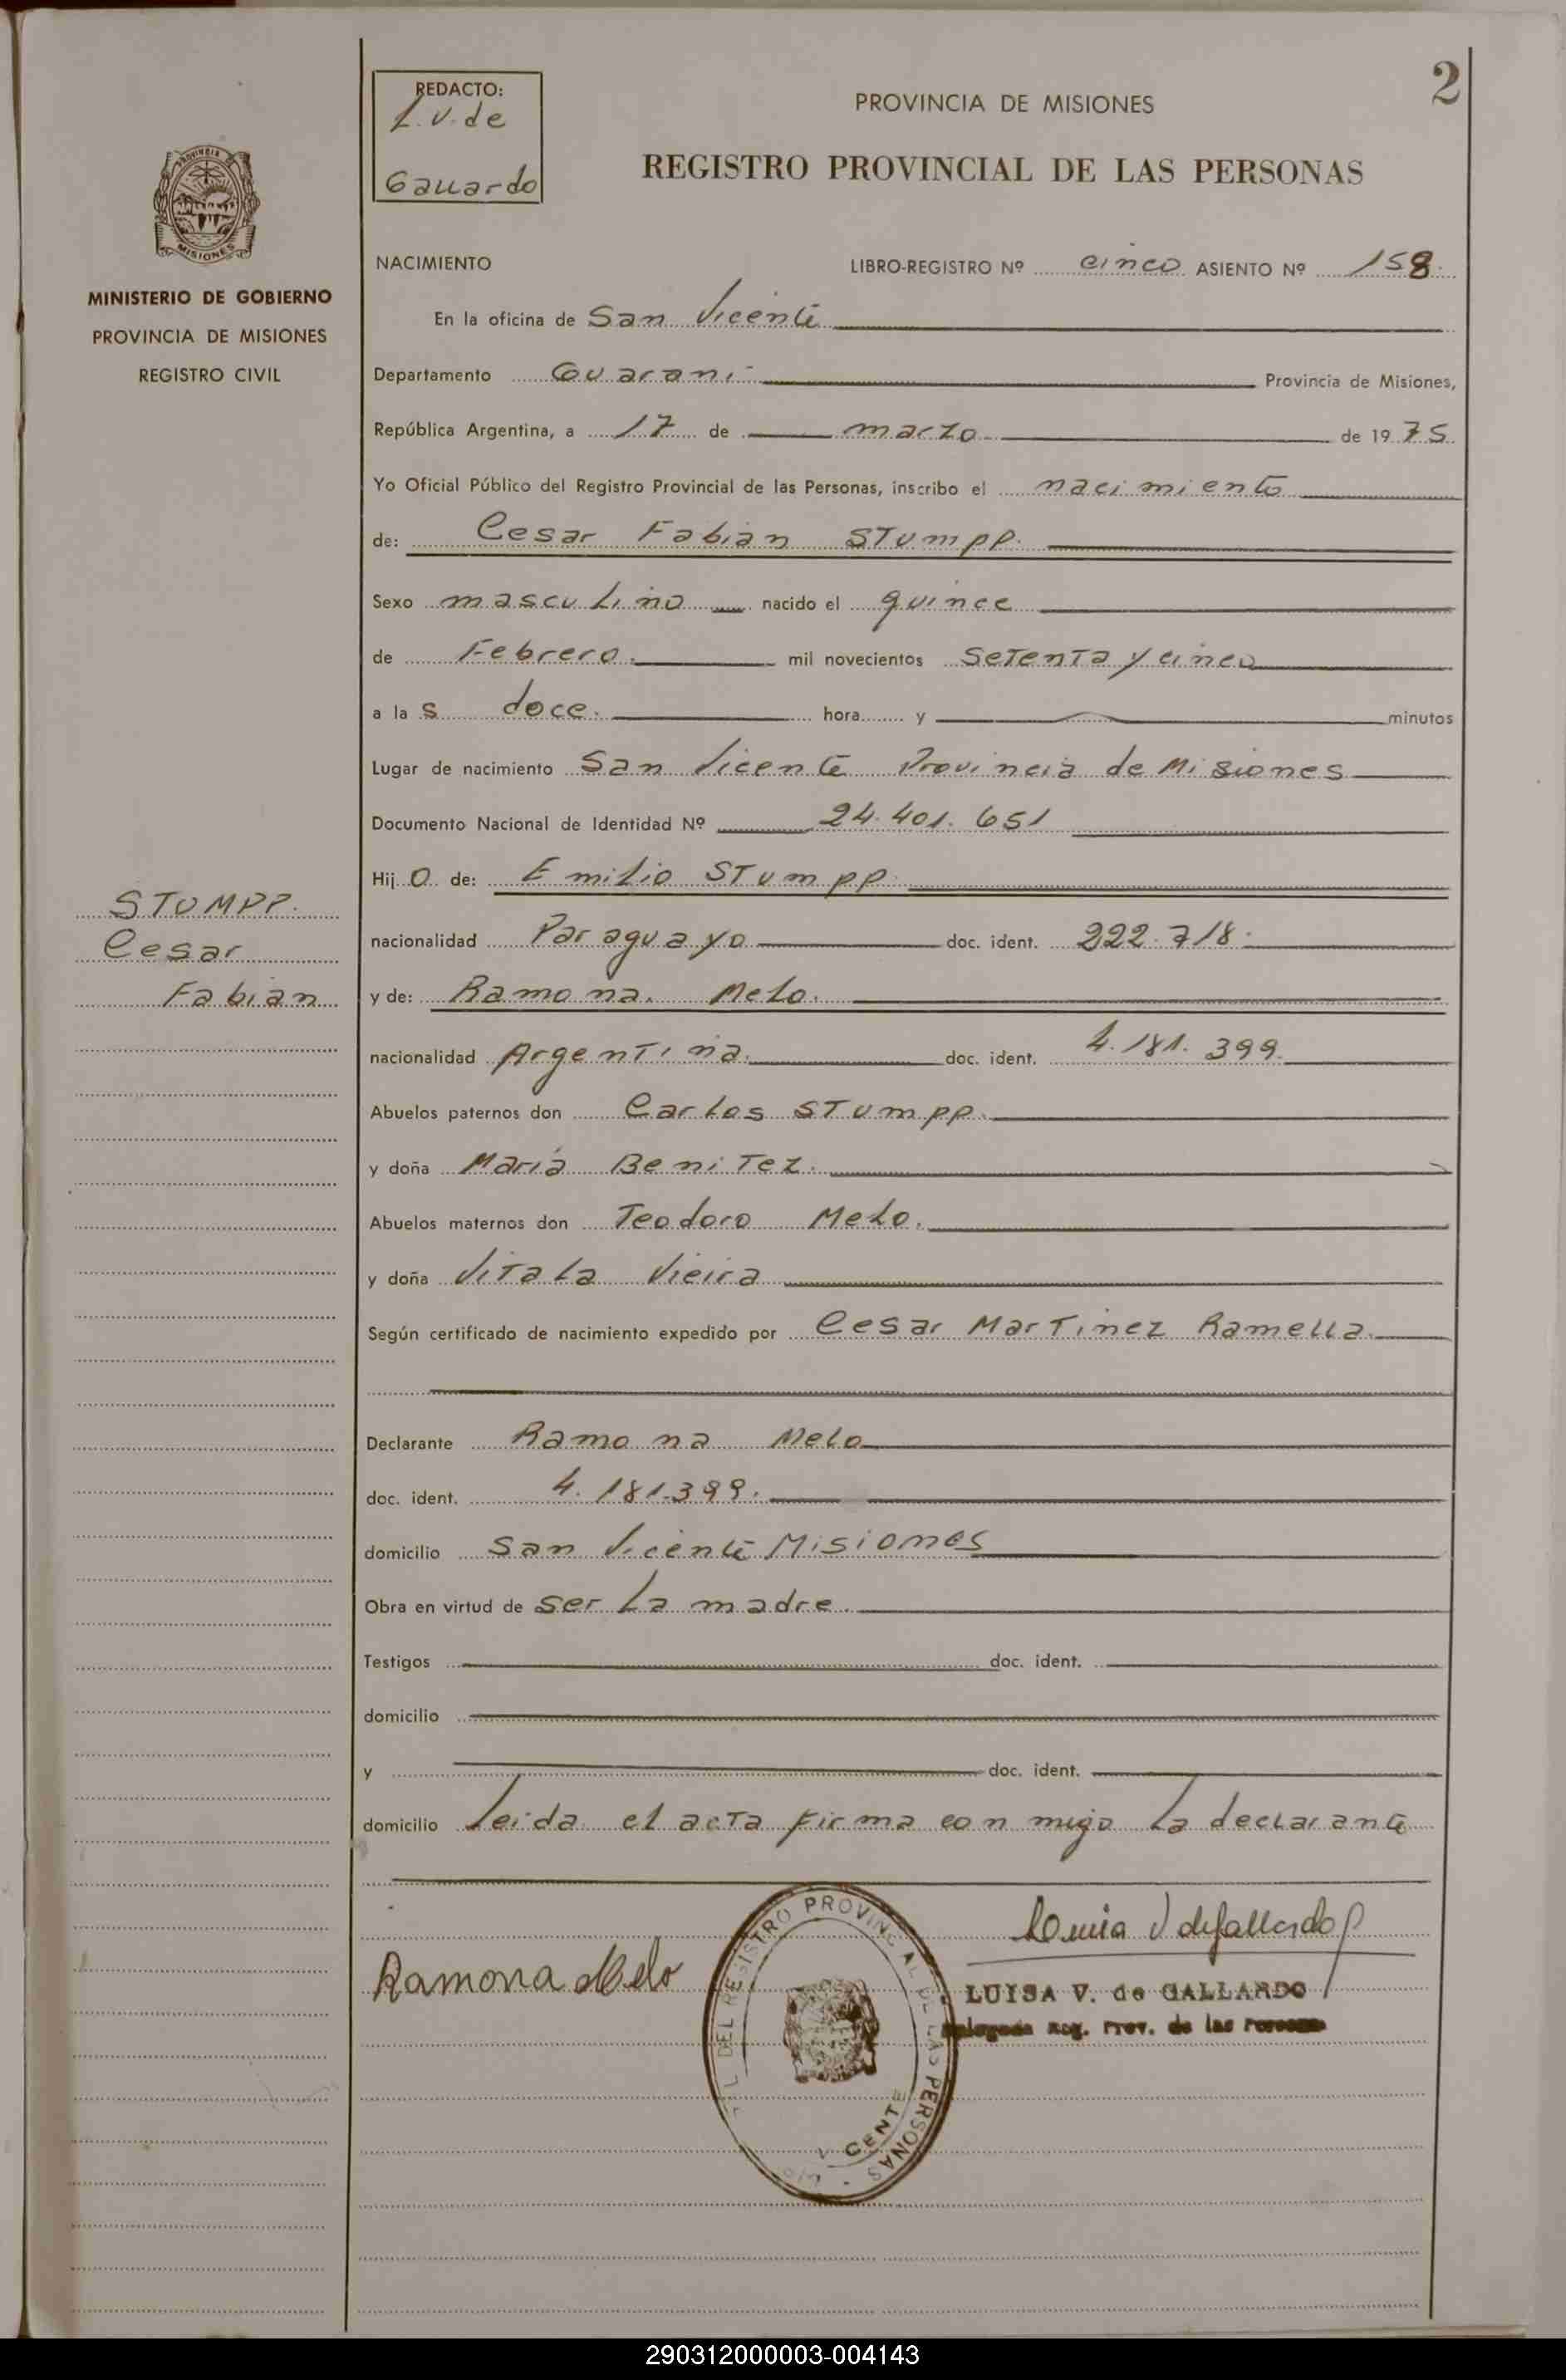 2
REDACTO:
L. V. de
Gallardo
PROVINCIA DE MISIONES
REGISTRO PROVINCIAL DE LAS PERSONAS
PROVINCIA
MISIONES
MINISTERIO DE GOBIERNO
PROVINCIA DE MISIONES
REGISTRO CIVIL
NACIMIENTO LIBRO-REGISTRO Nº cinco ASIENTO Nº 158.
En la oficina de San Vicente
Departamento Guarani Provincia de Misiones,
República Argentina, a 17 de marzo de 1975.
Yo Oficial Público del Registro Provincial de las Personas, inscribo el nacimiento
de: Cesar Fabian STumpp.
Sexo masculino nacido el quince
de Febrero. mil novecientos SeTenTa y cinco
a las doce. hora y minutos
Lugar de nacimiento San Vicente Provincia de Misiones
Documento Nacional de Identidad Nº 24.401.651
Hijo de: Emilio STumpp
nacionalidad Paraguayo doc. ident. 222.718.
y de: Ramona. Melo.
nacionalidad ArgenTina. doc. ident. 4.181.399.
Abuelos paternos don Carlos STumpp.
y doña María BeniTez.
Abuelos maternos don Teodoro Melo.
y doña ViTala Vieira
Según certificado de nacimiento expedido por Cesar MarTinez Ramella.
Declarante Ramona Melo
doc. ident. 4.181.399.
domicilio San Vicente Misiones
Obra en virtud de ser La madre.
Testigos doc. ident.
domicilio
y doc. ident.
domicilio Leida el acTa firma conmigo La declarante
STUMPP.
Cesar
Fabian
Ramona Melo
DEL REGISTRO PROVINCIAL DE LAS PERSONAS
CENTE
Luisa V de Gallardo
LUISA V. de GALLARDO
Delegada Reg. Prov. de las Personas
290312000003-004143